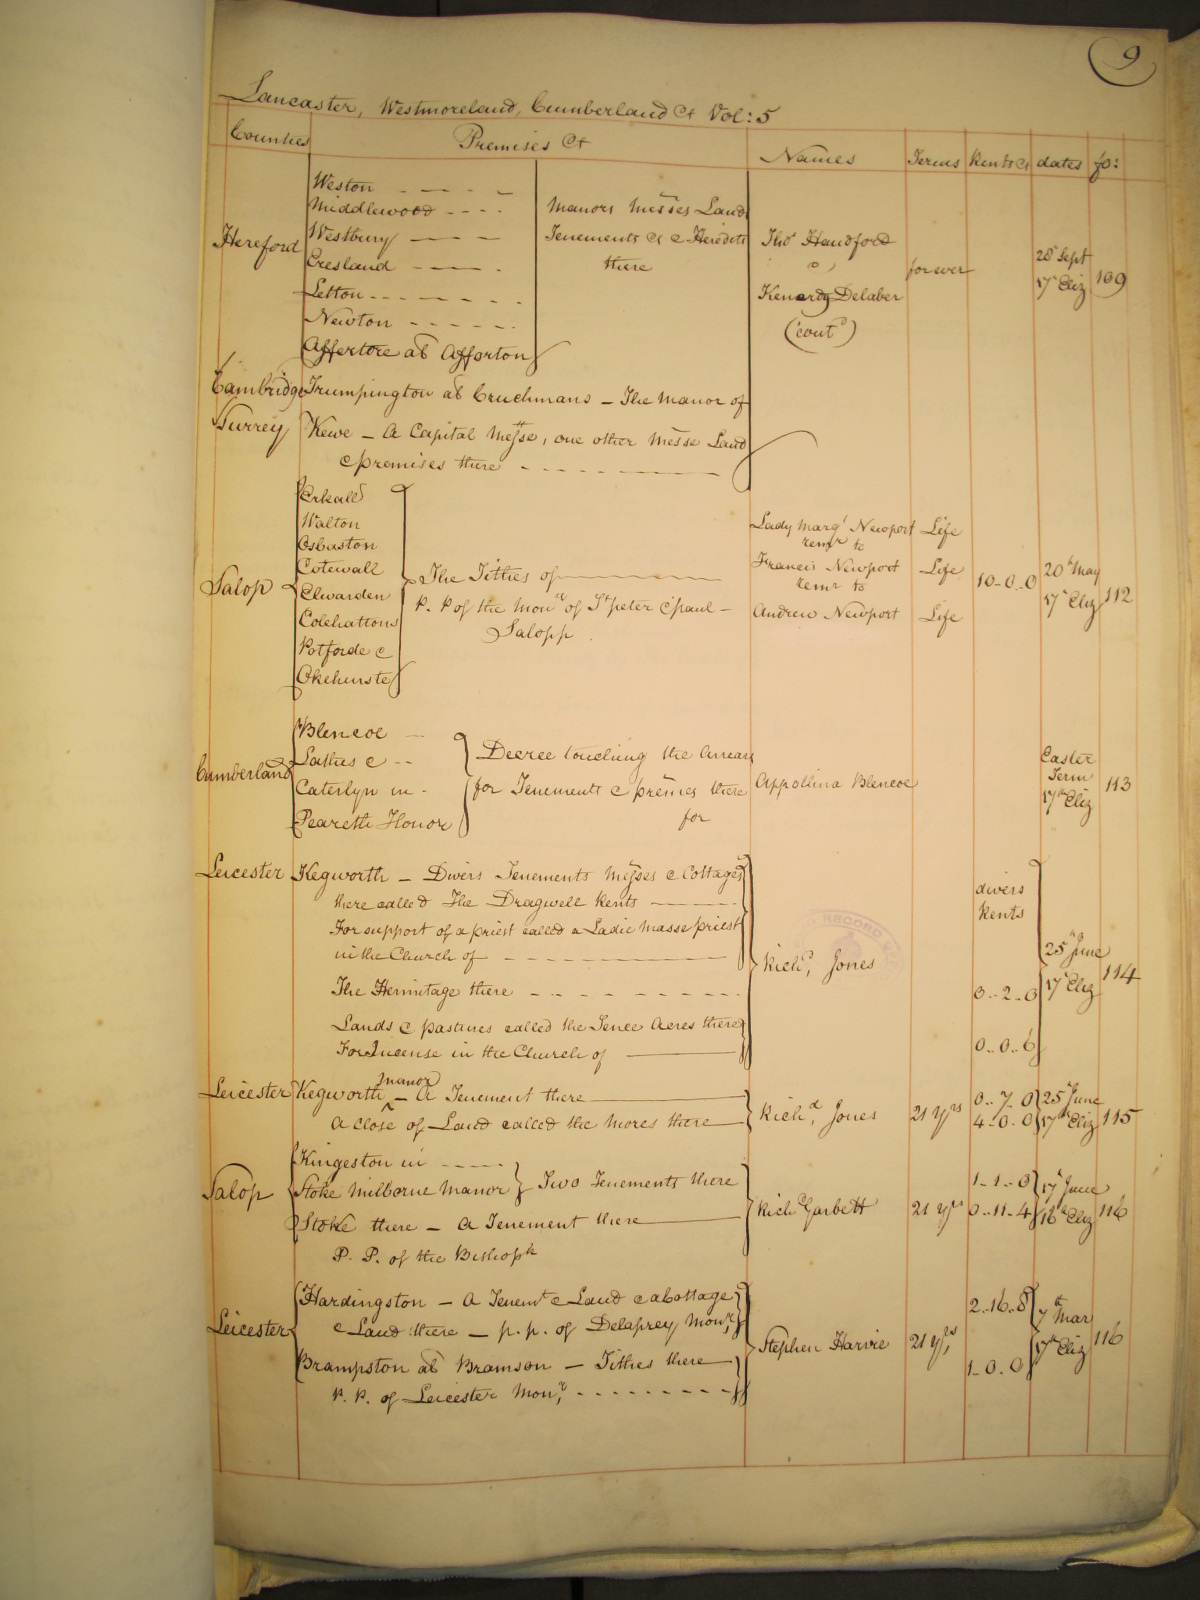 9
Lancaster, Westmoreland, Cumberland &c Vol: 5
Counties Premises &c Names Terms Rents &c dates fo:
Hereford
Weston
Middlewood
Westbury
Cresland
Letton
Newton
Affertore als Afforton
Manors Messes Land
Tenements &c & Heredits
there
Thos Handford
&
Kenardy Delaber
(cont)
for ever
28 Sept
17 Eliz
109
Cambridge Trumpington als Cruchmans - The Manor of
Surrey Kewe - A Capital Messe, one other Messe Land
& premises there
Salop
Erkall
Walton
Osbaston
Cotewall
Elwarden
Colehattons
Potforde &
Okehurste
The Tithes of
P. P of the Mony of St peter & paul -
Salopp
Lady Margt Newport Life
remr to
Francis Newport Life
remr to
Andrew Newport Life
10-0-0
20th May
17 Eliz
112
Cumberland
Blencoe
Lathes &
Caterlyn in
Peareth Honor
Decree touching the Arrears
for Tenements & premes there
for
Appollina Blencoe
Easter
Term
17th Eliz
113
Leicester Kegworth - Divers Tenements Messes & Cottages
there called The Dragwell Rents
For support of a priest called a Ladie Masse priest
in the Church of
The Hermitage there
Lands & pastures called the Tence Acres there
For Incense in the Church of
Richd, Jones
divers
Rents
0..2..0
0..0..6
25 June
17 Eliz
114
Leicester Kegworth manor - A Tenement there
A close of Land called the Mores there
Richd, Jones
21 yrs
0..7..0
4-0-0
25 June
17th Eliz
115
Salop
Kingeston in
Stoke Milborne Manor
Two Tenements there
Stoke there - A Tenement there
P. P. of the Bishopk
Richd Garbett
21 yrs
1-1-0
0-11-4
17 June
16th Eliz
116
Leicester
Hardingston - A Tenemt & Land & a Cottage
& Land there - p. p. of Delaprey Mony,
Brampston als Bramson - Tithes there
P. P. of Leicester Mony,
Stephen Harvie
21 yrs,
2..16..8
1-0-0
7th Mar
17th Eliz
116
RECORD